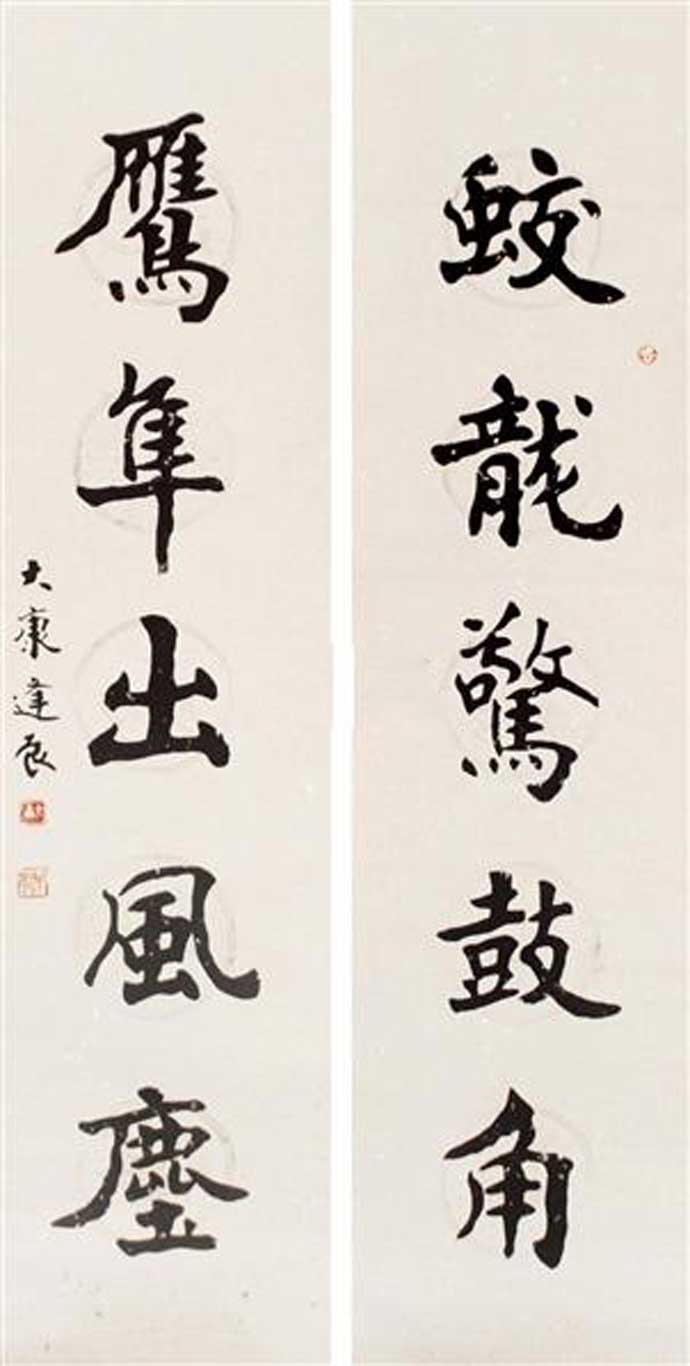 蛟龍驚鼓角
鷹隼出風塵
大康達良